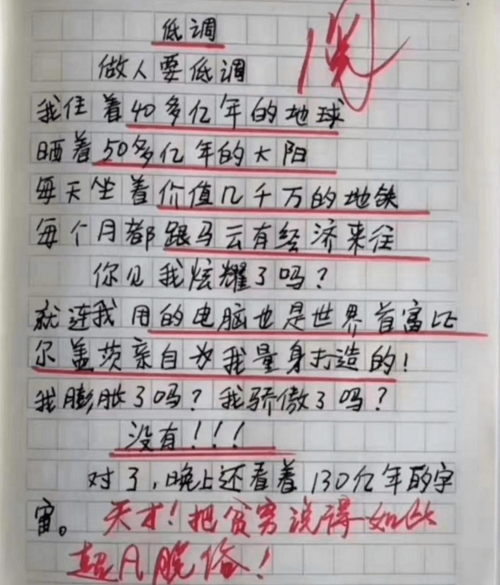 低调
做人要低调
我住着40多亿年的地球
晒着50多亿年的太阳
每天坐着价值几千万的地铁
每个月都跟马云有经济来往
你见我炫耀了吗?
就连我用的电脑也是世界首富比
尔盖茨亲自为我量身打造的!
我膨胀了吗?我骄傲了吗?
没有!!!
对了,晚上还看着130亿年的宇
宙。天才!把贫穷说得如此
超凡脱俗!